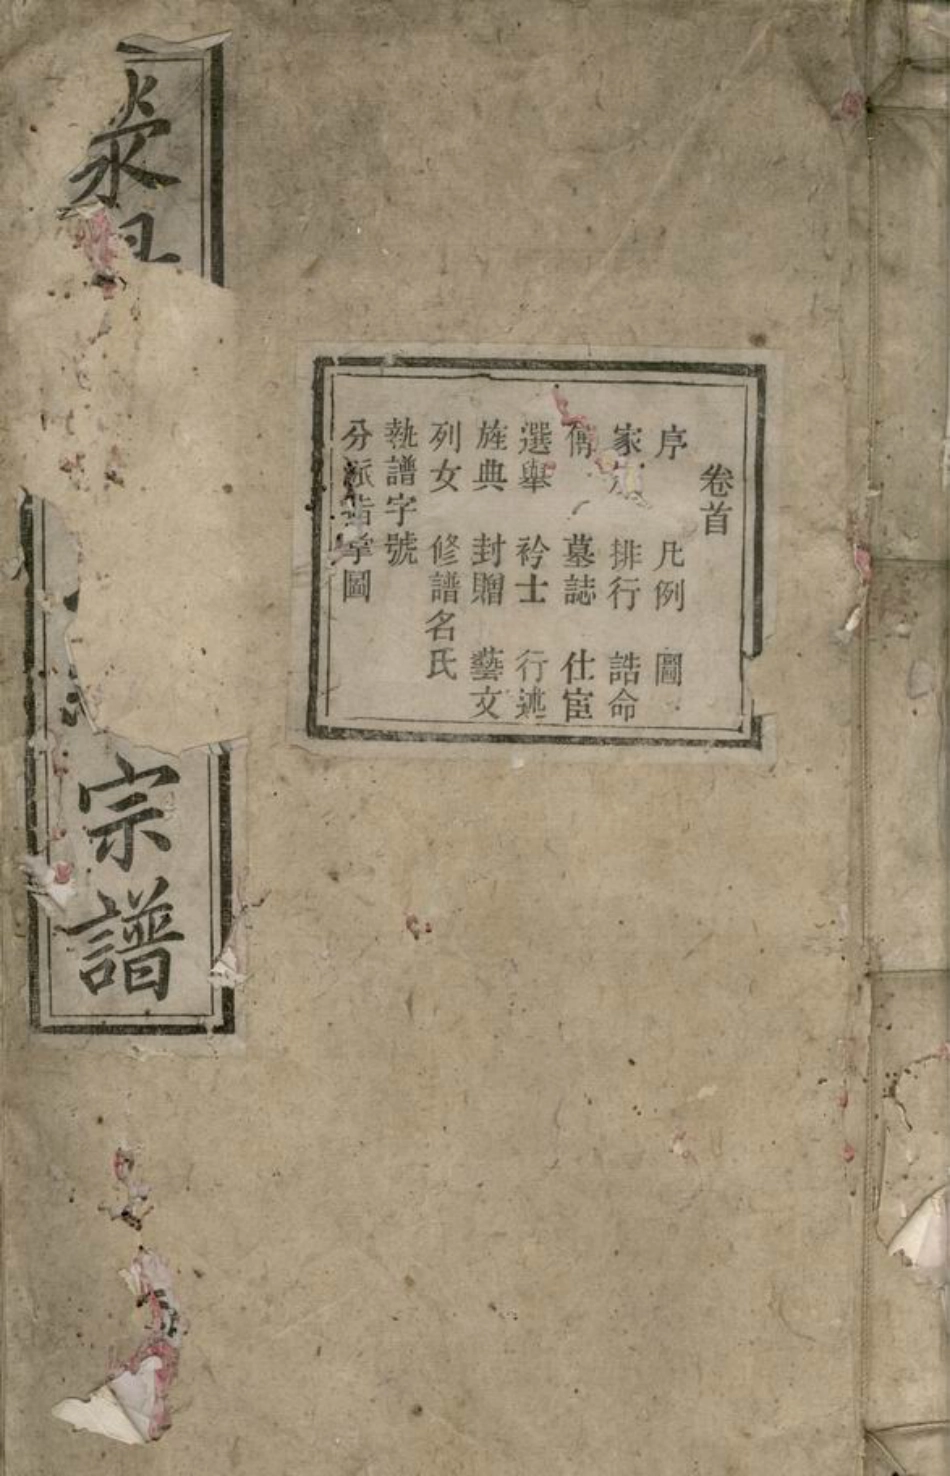 卷首
序 凡例 圖
家 排行 誥命
傳 墓誌 仕宦
選舉 衿士 行述
旌典 封贈 藝文
列女 修譜名氏
執譜字號
分派指掌圖
宗譜